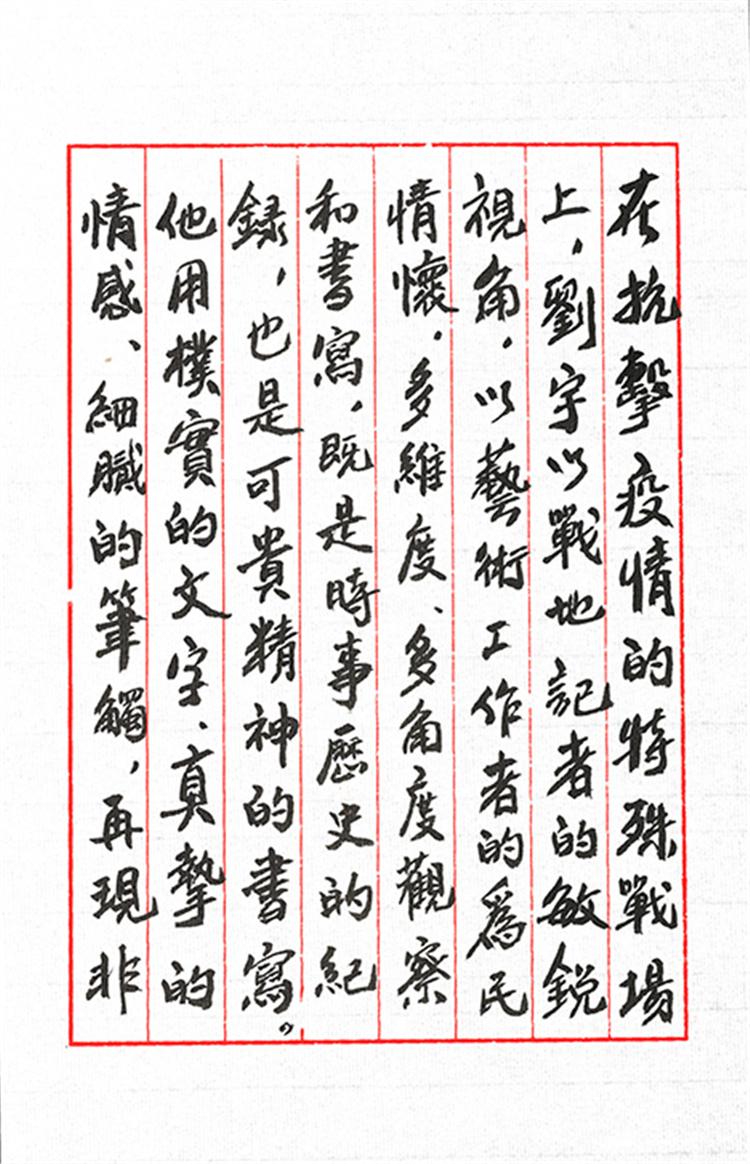 在抗擊疫情的特殊戰場
上，劉宇以戰地記者的敏銳
視角，以藝術工作者的爲民
情懷，多維度、多角度觀察
和書寫，既是時事歷史的紀
録，也是可貴精神的書寫。
他用樸實的文字、真摯的
情感、細膩的筆觸，再現非